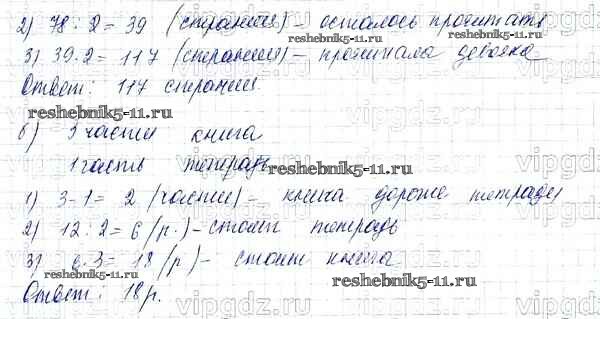 2) 78 : 2 = 39 (страния) - осталось прочитать
3) 39·2 = 117 (страниы) - прочитала девочка
Ответ: 117 страниы.
reshebnik5-11.ru
reshebnik5-11.ru
б) 3 части книга
1 часть тетрадь
reshebnik5-11.ru
1) 3-1 = 2 (части) - книга дороже тетради
2) 12 : 2 = 6 (р.) - стоит тетрадь
3) 6·3 = 18 (р) - стоит книга
reshebnik5-11.ru
reshebnik5-11.ru
Ответ: 18 р.
vipgdz.ru